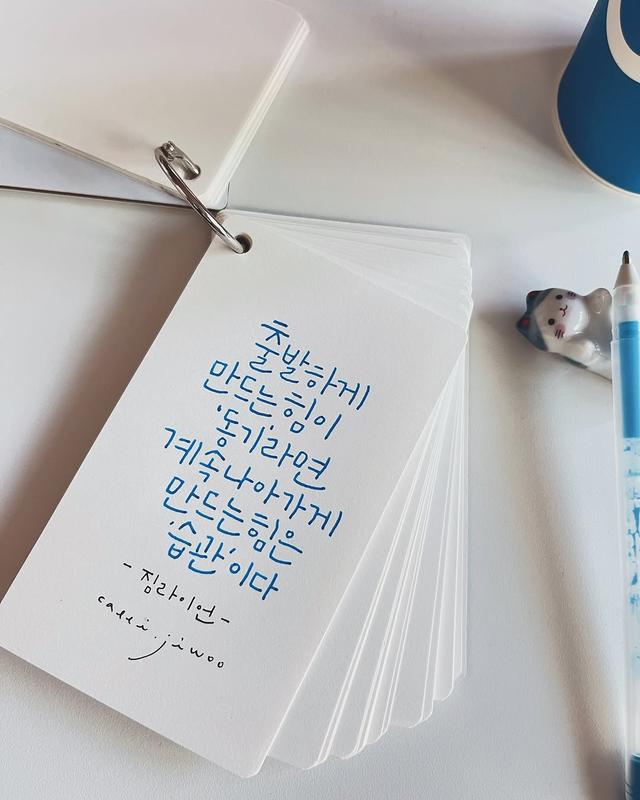 출발하게
만드는 힘이
'동기'라면
계속 나아가게
만드는 힘은
'습관'이다
- 짐 라이언 -
calli.jiwoo